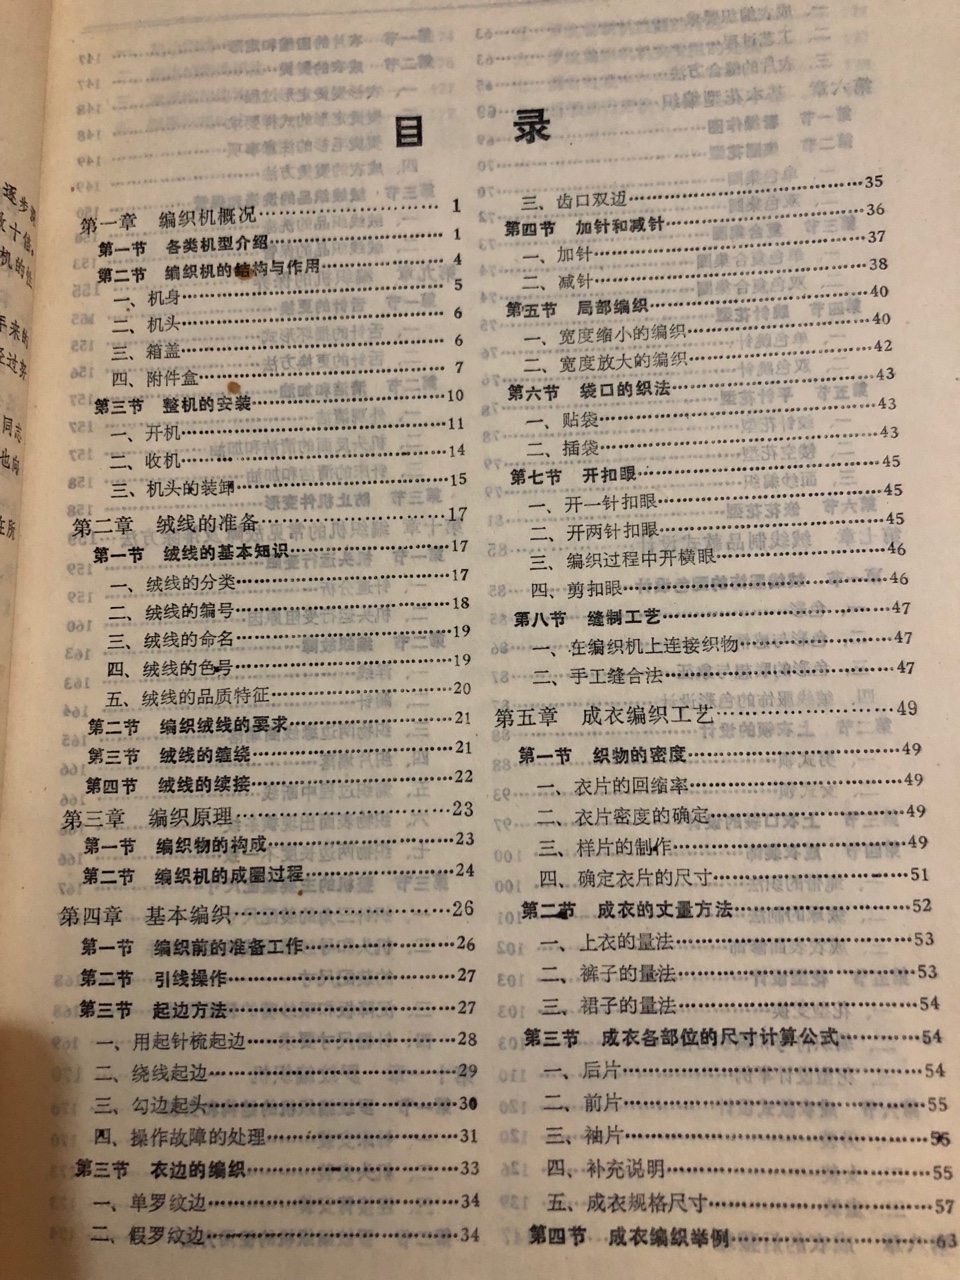 目 录
第一章 编织机概况……………………1
第一节 各类机型介绍……………………1
第二节 编织机的结构与作用……………………4
一、机身……………………5
二、机头……………………6
三、箱盖……………………6
四、附件盒……………………7
第三节 整机的安装……………………10
一、开机……………………11
二、收机……………………14
三、机头的装卸……………………15
第二章 绒线的准备……………………17
第一节 绒线的基本知识……………………17
一、绒线的分类……………………17
二、绒线的编号……………………18
三、绒线的命名……………………19
四、绒线的色号……………………19
五、绒线的品质特征……………………20
第二节 编织绒线的要求……………………21
第三节 绒线的缠绕……………………21
第四节 绒线的续接……………………22
第三章 编织原理……………………23
第一节 编织物的构成……………………23
第二节 编织机的成圈过程……………………24
第四章 基本编织……………………26
第一节 编织前的准备工作……………………26
第二节 引线操作……………………27
第三节 起边方法……………………27
一、用起针梳起边……………………28
二、绕线起边……………………29
三、勾边起头……………………30
四、操作故障的处理……………………31
第三节 衣边的编织……………………33
一、单罗纹边……………………34
二、假罗纹边……………………34
三、齿口双边……………………35
第四节 加针和减针……………………36
一、加针……………………37
二、减针……………………38
第五节 局部编织……………………40
一、宽度缩小的编织……………………40
二、宽度放大的编织……………………42
第六节 袋口的织法……………………43
一、贴袋……………………43
二、插袋……………………43
第七节 开扣眼……………………45
一、开一针扣眼……………………45
二、开两针扣眼……………………45
三、编织过程中开横眼……………………46
四、剪扣眼……………………46
第八节 缝制工艺……………………47
一、在编织机上连接织物……………………47
二、手工缝合法……………………47
第五章 成衣编织工艺……………………49
第一节 织物的密度……………………49
一、衣片的回缩率……………………49
二、衣片密度的确定……………………49
三、样片的制作……………………49
四、确定衣片的尺寸……………………51
第二节 成衣的丈量方法……………………52
一、上衣的量法……………………53
二、裤子的量法……………………53
三、裙子的量法……………………54
第三节 成衣各部位的尺寸计算公式……………………54
一、后片……………………54
二、前片……………………55
三、袖片……………………55
四、补充说明……………………55
五、成衣规格尺寸……………………57
第四节 成衣编织举例……………………63